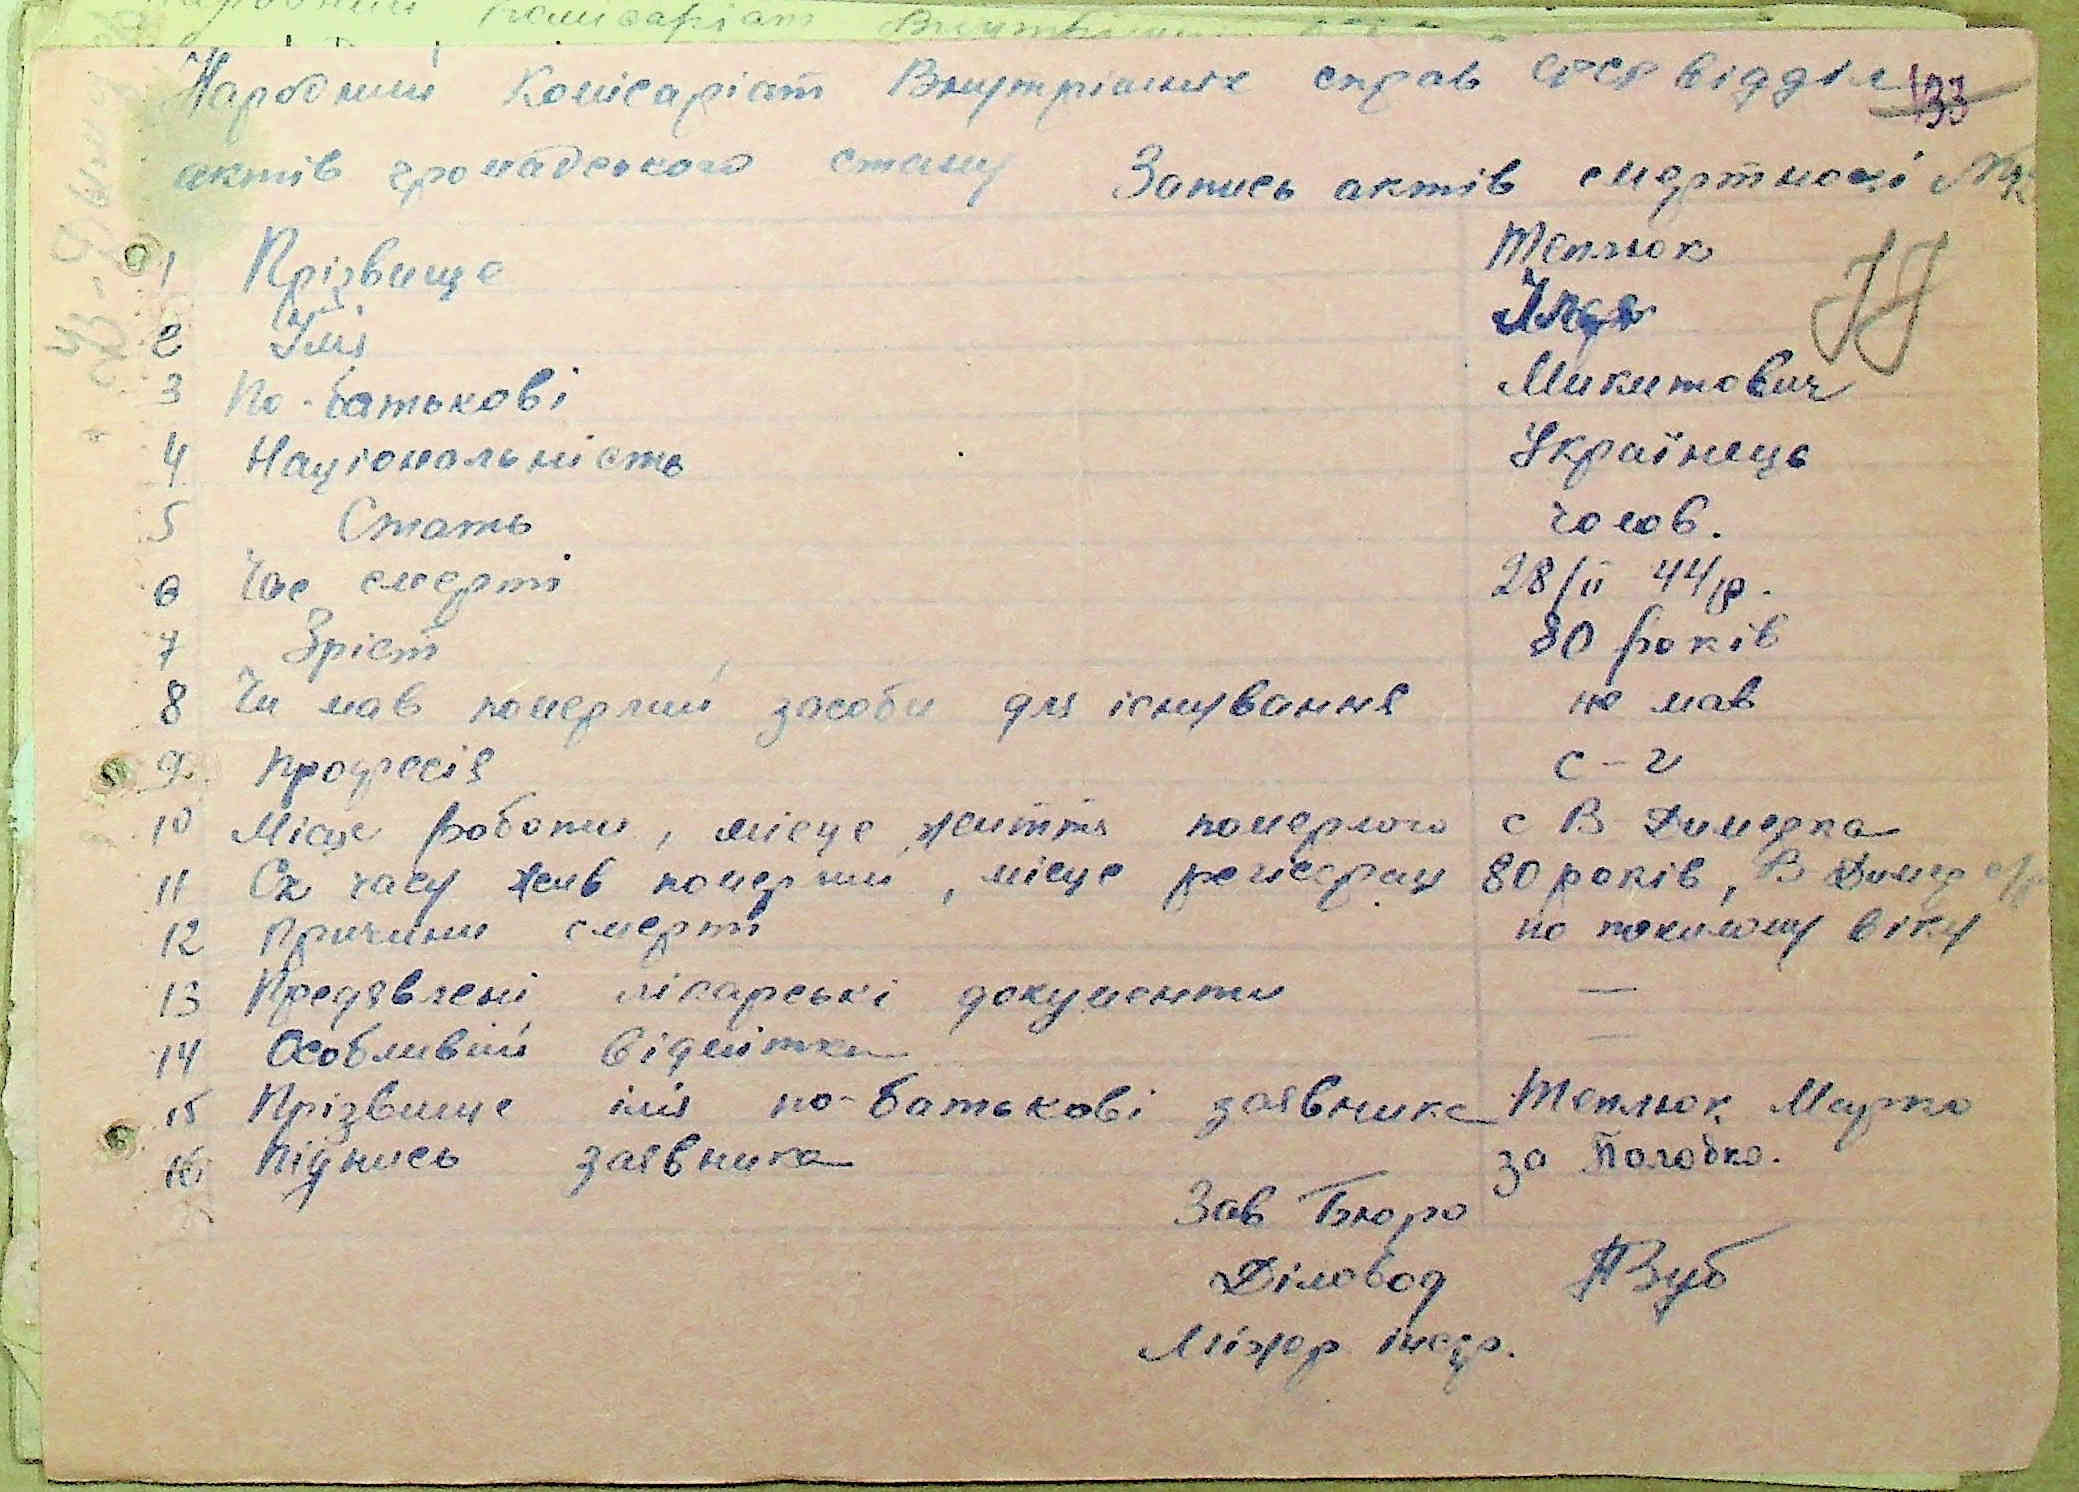 Народний Комісаріат Внутрішніх справ відділ 133
актів громадського стану Запись актів смертності №
1 Прізвище Теплюк
2 Імя
3 По-батькові Микитович
4 Національність Українець
5 Стать чолов.
6 Час смерті 28/ІІ 44 р.
7 Зріст 80 років
8 Чи мав померлий засоби для існування не мав
9 Професія с-г
10 Місце роботи, місце життя померлого с В Димерка
11 Ск часу жив померлий, місце регистрац 80 років, В Димер с/р
12 Причини смерті по похилому віку
13 Предявлені лікарські документи —
14 Особливий відмітки —
15 Прізвище імя по-батькові заявника Теплюк Марко
16 Підпись заявника за
Зав Бюро
Діловод Зуб